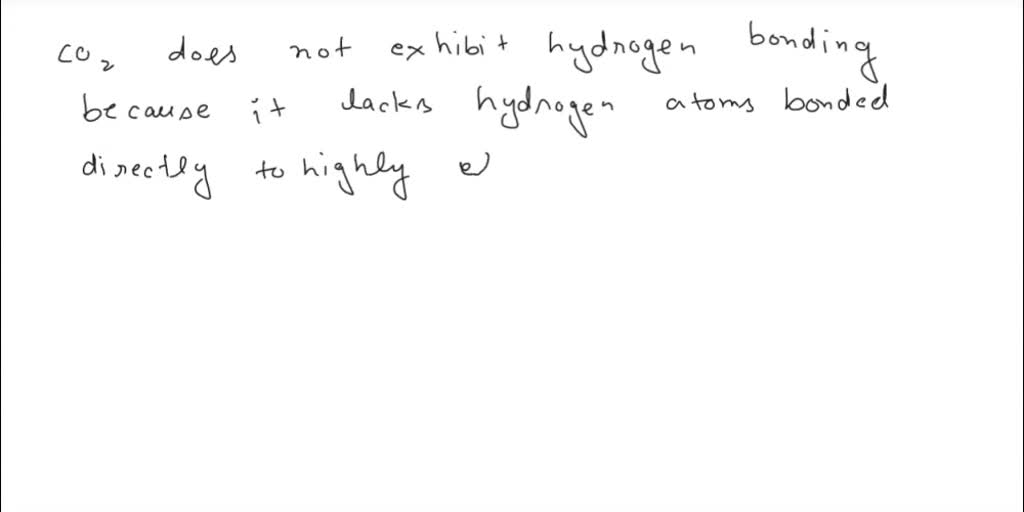 CO₂ does not exhibit hydrogen bonding
because it lacks hydrogen atoms bonded
directly to highly e